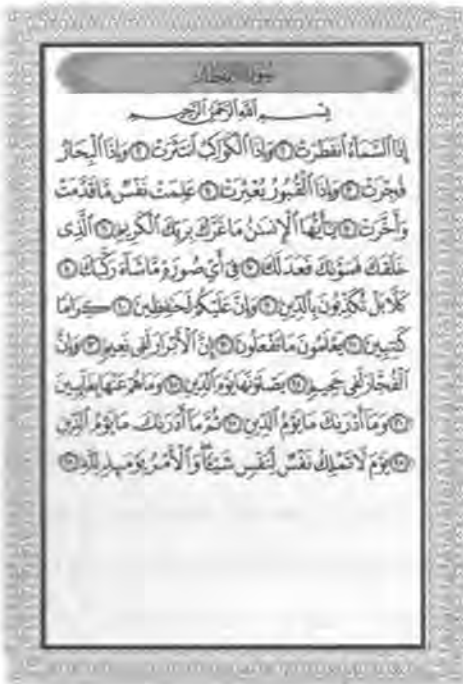 سورة الانفطار
بِسْمِ ٱللَّهِ ٱلرَّحْمَٰنِ ٱلرَّحِيمِ
إِذَا ٱلسَّمَآءُ ٱنفَطَرَتْ ١ وَإِذَا ٱلْكَوَاكِبُ ٱنتَثَرَتْ ٢ وَإِذَا ٱلْبِحَارُ
فُجِّرَتْ ٣ وَإِذَا ٱلْقُبُورُ بُعْثِرَتْ ٤ عَلِمَتْ نَفْسٌ مَّا قَدَّمَتْ
وَأَخَّرَتْ ٥ يَٰٓأَيُّهَا ٱلْإِنسَٰنُ مَا غَرَّكَ بِرَبِّكَ ٱلْكَرِيمِ ٦ ٱلَّذِى
خَلَقَكَ فَسَوَّىٰكَ فَعَدَلَكَ ٧ فِىٓ أَىِّ صُورَةٍ مَّا شَآءَ رَكَّبَكَ ٨
كَلَّا بَلْ تُكَذِّبُونَ بِٱلدِّينِ ٩ وَإِنَّ عَلَيْكُمْ لَحَٰفِظِينَ ١٠ كِرَامًا
كَٰتِبِينَ ١١ يَعْلَمُونَ مَا تَفْعَلُونَ ١٢ إِنَّ ٱلْأَبْرَارَ لَفِى نَعِيمٍ ١٣ وَإِنَّ
ٱلْفُجَّارَ لَفِى جَحِيمٍ ١٤ يَصْلَوْنَهَا يَوْمَ ٱلدِّينِ ١٥ وَمَا هُمْ عَنْهَا بِغَآئِبِينَ
١٦ وَمَآ أَدْرَىٰكَ مَا يَوْمُ ٱلدِّينِ ١٧ ثُمَّ مَآ أَدْرَىٰكَ مَا يَوْمُ ٱلدِّينِ
١٨ يَوْمَ لَا تَمْلِكُ نَفْسٌ لِّنَفْسٍ شَيْـًٔا وَٱلْأَمْرُ يَوْمَئِذٍ لِّلَّهِ ١٩